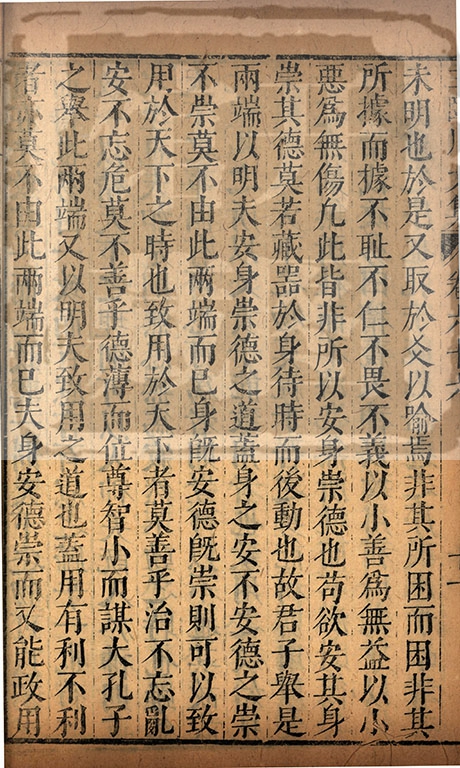 未明也於是又取於爻以喻焉非其所困而困非其
所據而據不耻不仁不畏不義以小善爲無益以小
惡爲無傷凢此皆非所以安身崇德也苟欲安其身
崇其德莫若藏器於身待時而後動也故君子舉是
兩端以明夫安身崇德之道蓋身之安不安德之崇
不崇莫不由此兩端而巳身旣安德旣崇則可以致
用於天下之時也致用於天下者莫善乎治不忘亂
安不忘危莫不善乎德薄而位尊智小而謀大孔子
之舉此兩端又以明夫致用之道也蓋用有利不利
者亦莫不由此兩端而巳夫身安德崇而又能政用